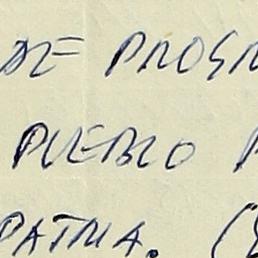 DE PROGR
PUEBLO
PATRIA. (